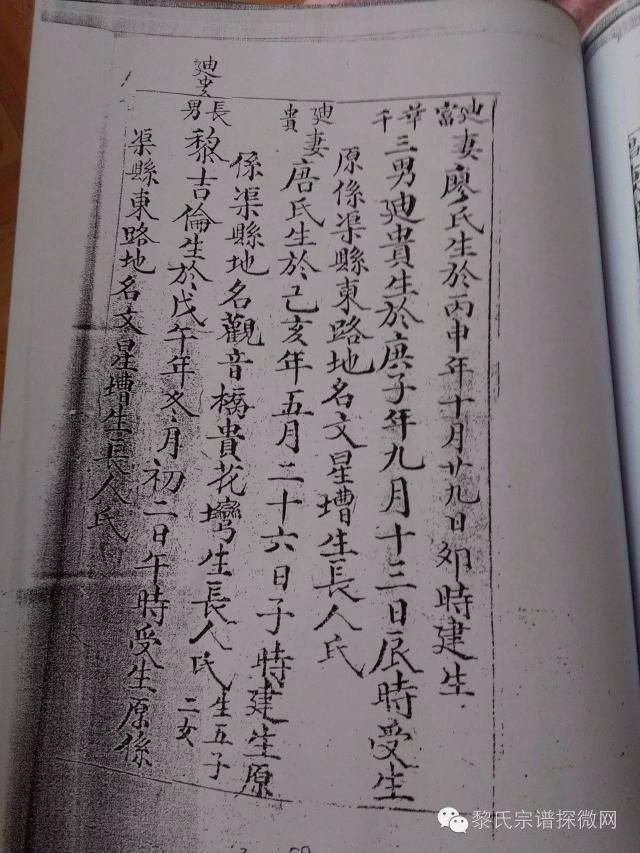 廸富妻廖氏生於丙申年十月廿九日卯時建生
華千三男廸貴生於庚子年九月十三日辰時受生
原係渠縣東路地名文星墰生長人氏
廸貴妻唐氏生於己亥年五月二十六日子時建生原
係渠縣地名觀音橋貴花灣生長人氏生五子二女
廸貴長男黎吉倫生於戊午年冬月初二日午時受生原係
渠縣東路地名文星墰生長人氏
黎氏宗谱探微网